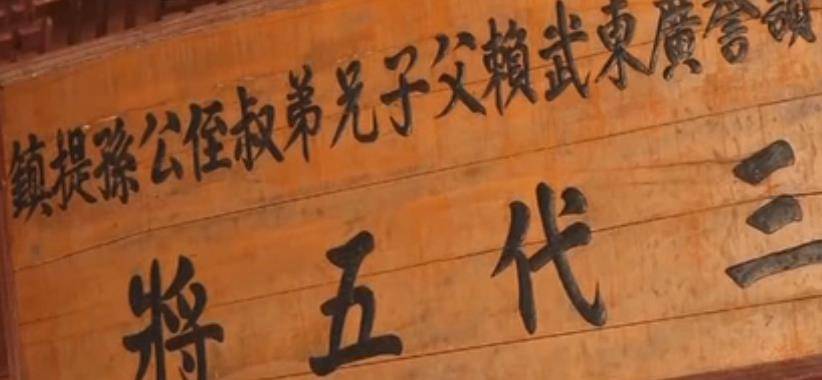 頌譽廣東武賴父子兄弟叔侄公孫提鎮
三代五將